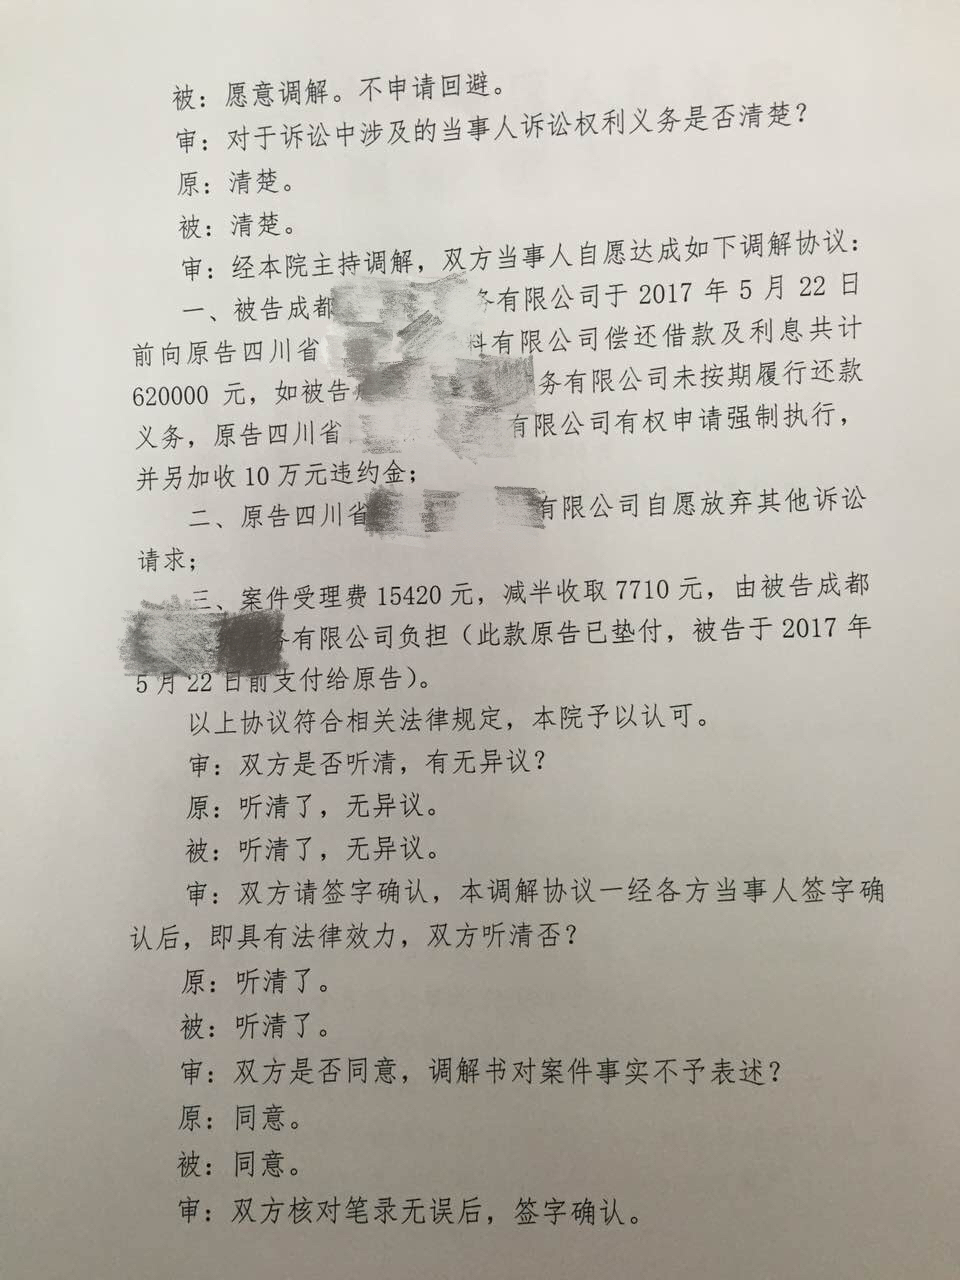 被：愿意调解。不申请回避。
审：对于诉讼中涉及的当事人诉讼权利义务是否清楚？
原：清楚。
被：清楚。
审：经本院主持调解，双方当事人自愿达成如下调解协议：
一、被告成都 务有限公司于 2017 年 5 月 22 日
前向原告四川省 料有限公司偿还借款及利息共计
620000 元，如被告 务有限公司未按期履行还款
义务，原告四川省 有限公司有权申请强制执行，
并另加收 10 万元违约金；
二、原告四川省 有限公司自愿放弃其他诉讼
请求；
三、案件受理费 15420 元，减半收取 7710 元，由被告成都
务有限公司负担（此款原告已垫付，被告于 2017 年
5 月 22 日前支付给原告）。
以上协议符合相关法律规定，本院予以认可。
审：双方是否听清，有无异议？
原：听清了，无异议。
被：听清了，无异议。
审：双方请签字确认，本调解协议一经各方当事人签字确
认后，即具有法律效力，双方听清否？
原：听清了。
被：听清了。
审：双方是否同意，调解书对案件事实不予表述？
原：同意。
被：同意。
审：双方核对笔录无误后，签字确认。